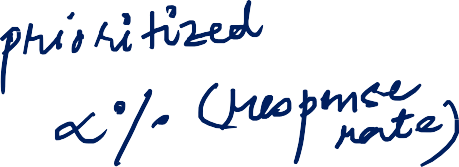 prioritized
α % (response
rate)